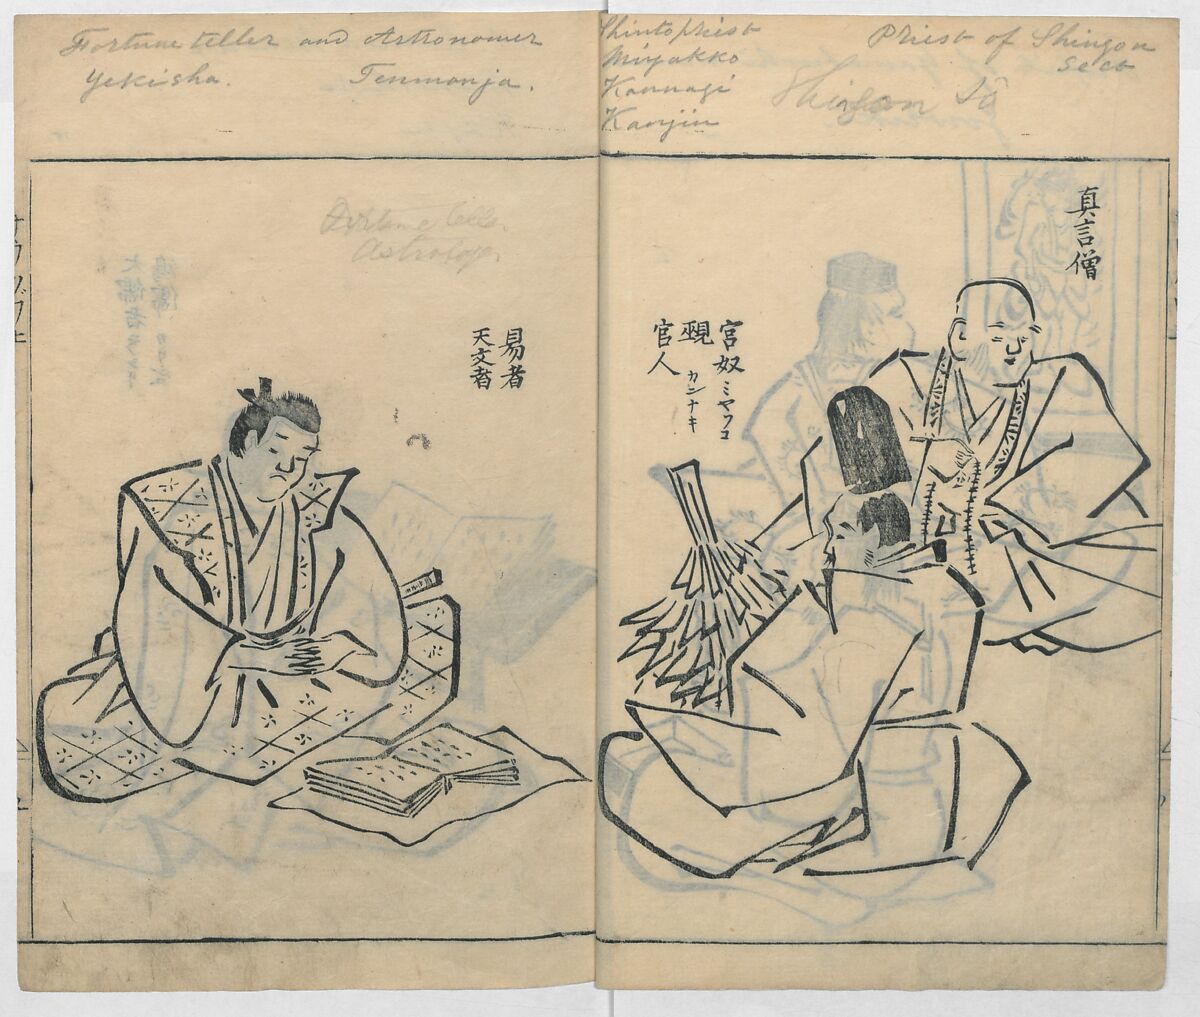 Fortune teller and Astronomer
Yekisha. Tenmonja.
Shintopriest
Miyakko
Kannagi
Kanjin
Priest of Shingon
Sect
Shingon Sō
真言僧
宮奴ミヤツコ
覡カンナキ
官人
易者
天文者
Fortune teller
Astrologer